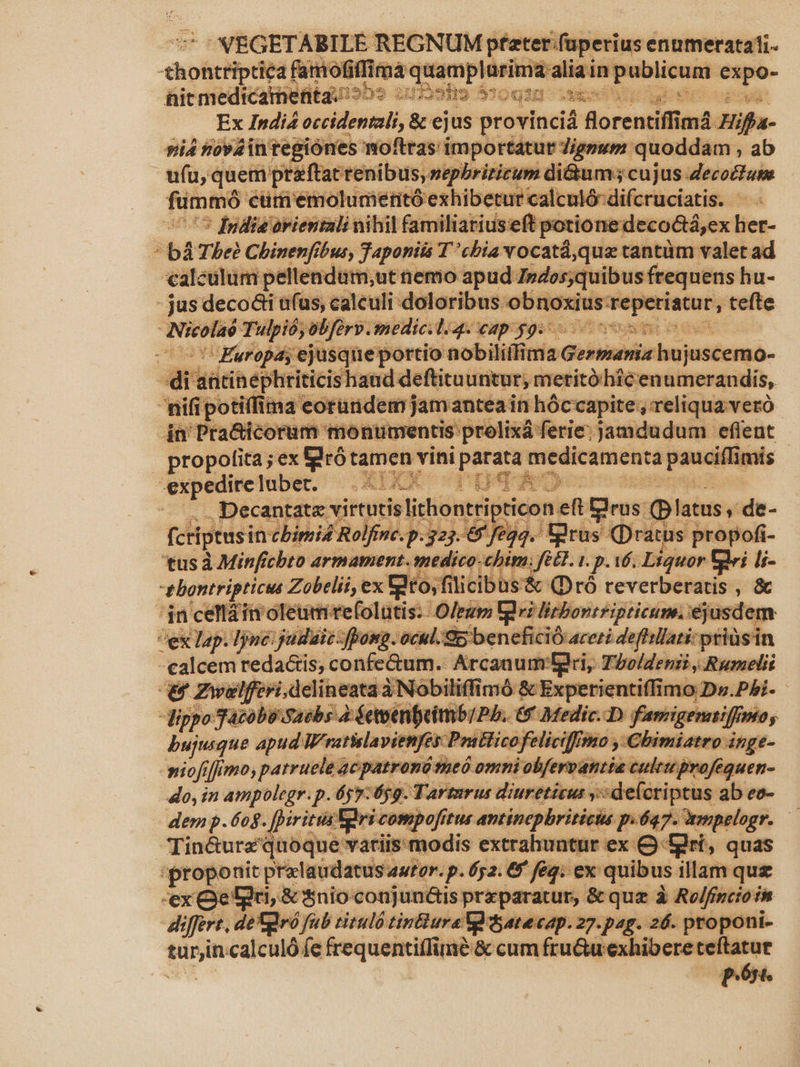 VEGETABILE REGNUM præter ſuperius enumerata li-
thontriptica famoſiſſima quamplurima alia in publicum expo-
nit medicamenta.
Ex Indiâ occidentali, & ejus provinciâ florentiſſimâ Hiſpa-
niâ novâ in regiones noſtras importatur lignum quoddam, ab
uſu, quem præſtat renibus, nephriticum dictum; cujus decoctum
ſummô cum emolumentô exhibetur calculô diſcruciatis.
Indiæ orientali nihil familiarius eſt potione decoctâ, ex her-
bâ Theè Chinenſibus, Japoniis T'chia vocatâ, quæ tantùm valet ad
calculum pellendum, ut nemo apud Indos, quibus frequens hu-
jus decocti uſus, calculi doloribus obnoxius reperiatur, teſte
Nicolaô Tulpiô, obſerv. medic. l. 4. cap 59.
Europa, ejusque portio nobiliſſima Germania hujuscemo-
di antinephriticis haud deſtituuntur, meritò hîc enumerandis,
niſi potiſſima eorundem jam antea in hôc capite, reliqua verò
in Practicorum monumentis prolixâ ſerie jamdudum eſſent
propoſita; ex 🜿rô tamen vini parata medicamenta pauciſſimis
expedire lubet.
Decantatæ virtutis lithontripticon eſt 🜿rus 🜕latus, de-
ſcriptus in chimiâ Rolfinc. p. 323. & ſeqq. 🜿rus 🜕ratus propoſi-
tus à Minſichto armament. medico-chim. ſect. 1. p. 16. Liquor 🜿ri li-
thontripticus Zobelii, ex 🜿ro, ſilicibus & 🜕rô reverberatis, &
in cellâ in oleum reſolutis. Oleum 🜿ri lithontripticum. ejusdem
ex lap. lync. judaic. ſpong. ocul. 🦀 beneficiô aceti deſtillati priùs in
calcem redactis, confectum. Arcanum 🜿ri, Tholdenii, Rumelii
& Zwelfferi, delineata à Nobiliſſimô & Experientiſſimo Dn. Phi-
lippo Jacobo Sachs à Lewenheimb / Ph. & Medic. D. famigeratiſſimo,
hujusque apud Wratislavienſes Practico feliciſſimo, Chimiatro inge-
nioſiſſimo, patruele ac patronô meô omni obſervantiæ cultu proſequen-
do, in ampolegr. p. 657. 659. Tartarus diureticus, deſcriptus ab eo-
dem p. 608. ſpiritus 🜿ri compoſitus antinephriticus p. 647. ampelogr.
Tincturæ quoque variis modis extrahuntur ex 🜔 🜿ri, quas
proponit prælaudatus autor. p. 652. & ſeq. ex quibus illam quæ
ex 🜔e 🜿ri, & ♁nio conjunctis præparatur, & quæ à Rolfincio in
differt. de 🜿rô ſub titulô tincturæ 🜿 ♄atæ cap. 27. pag. 26. proponi-
tur, in calculô ſe frequentiſſimè & cum fructu exhibere teſtatur
p. 651.